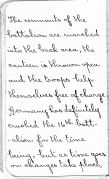 The remnants of the
battalion are marched
into the back area, the
canteen is thrown open
and the troops help
themselves free of charge.
Germany has definitely
crushed the 16th batt-
-alion for the time
being, but as time goes
on changes take place,